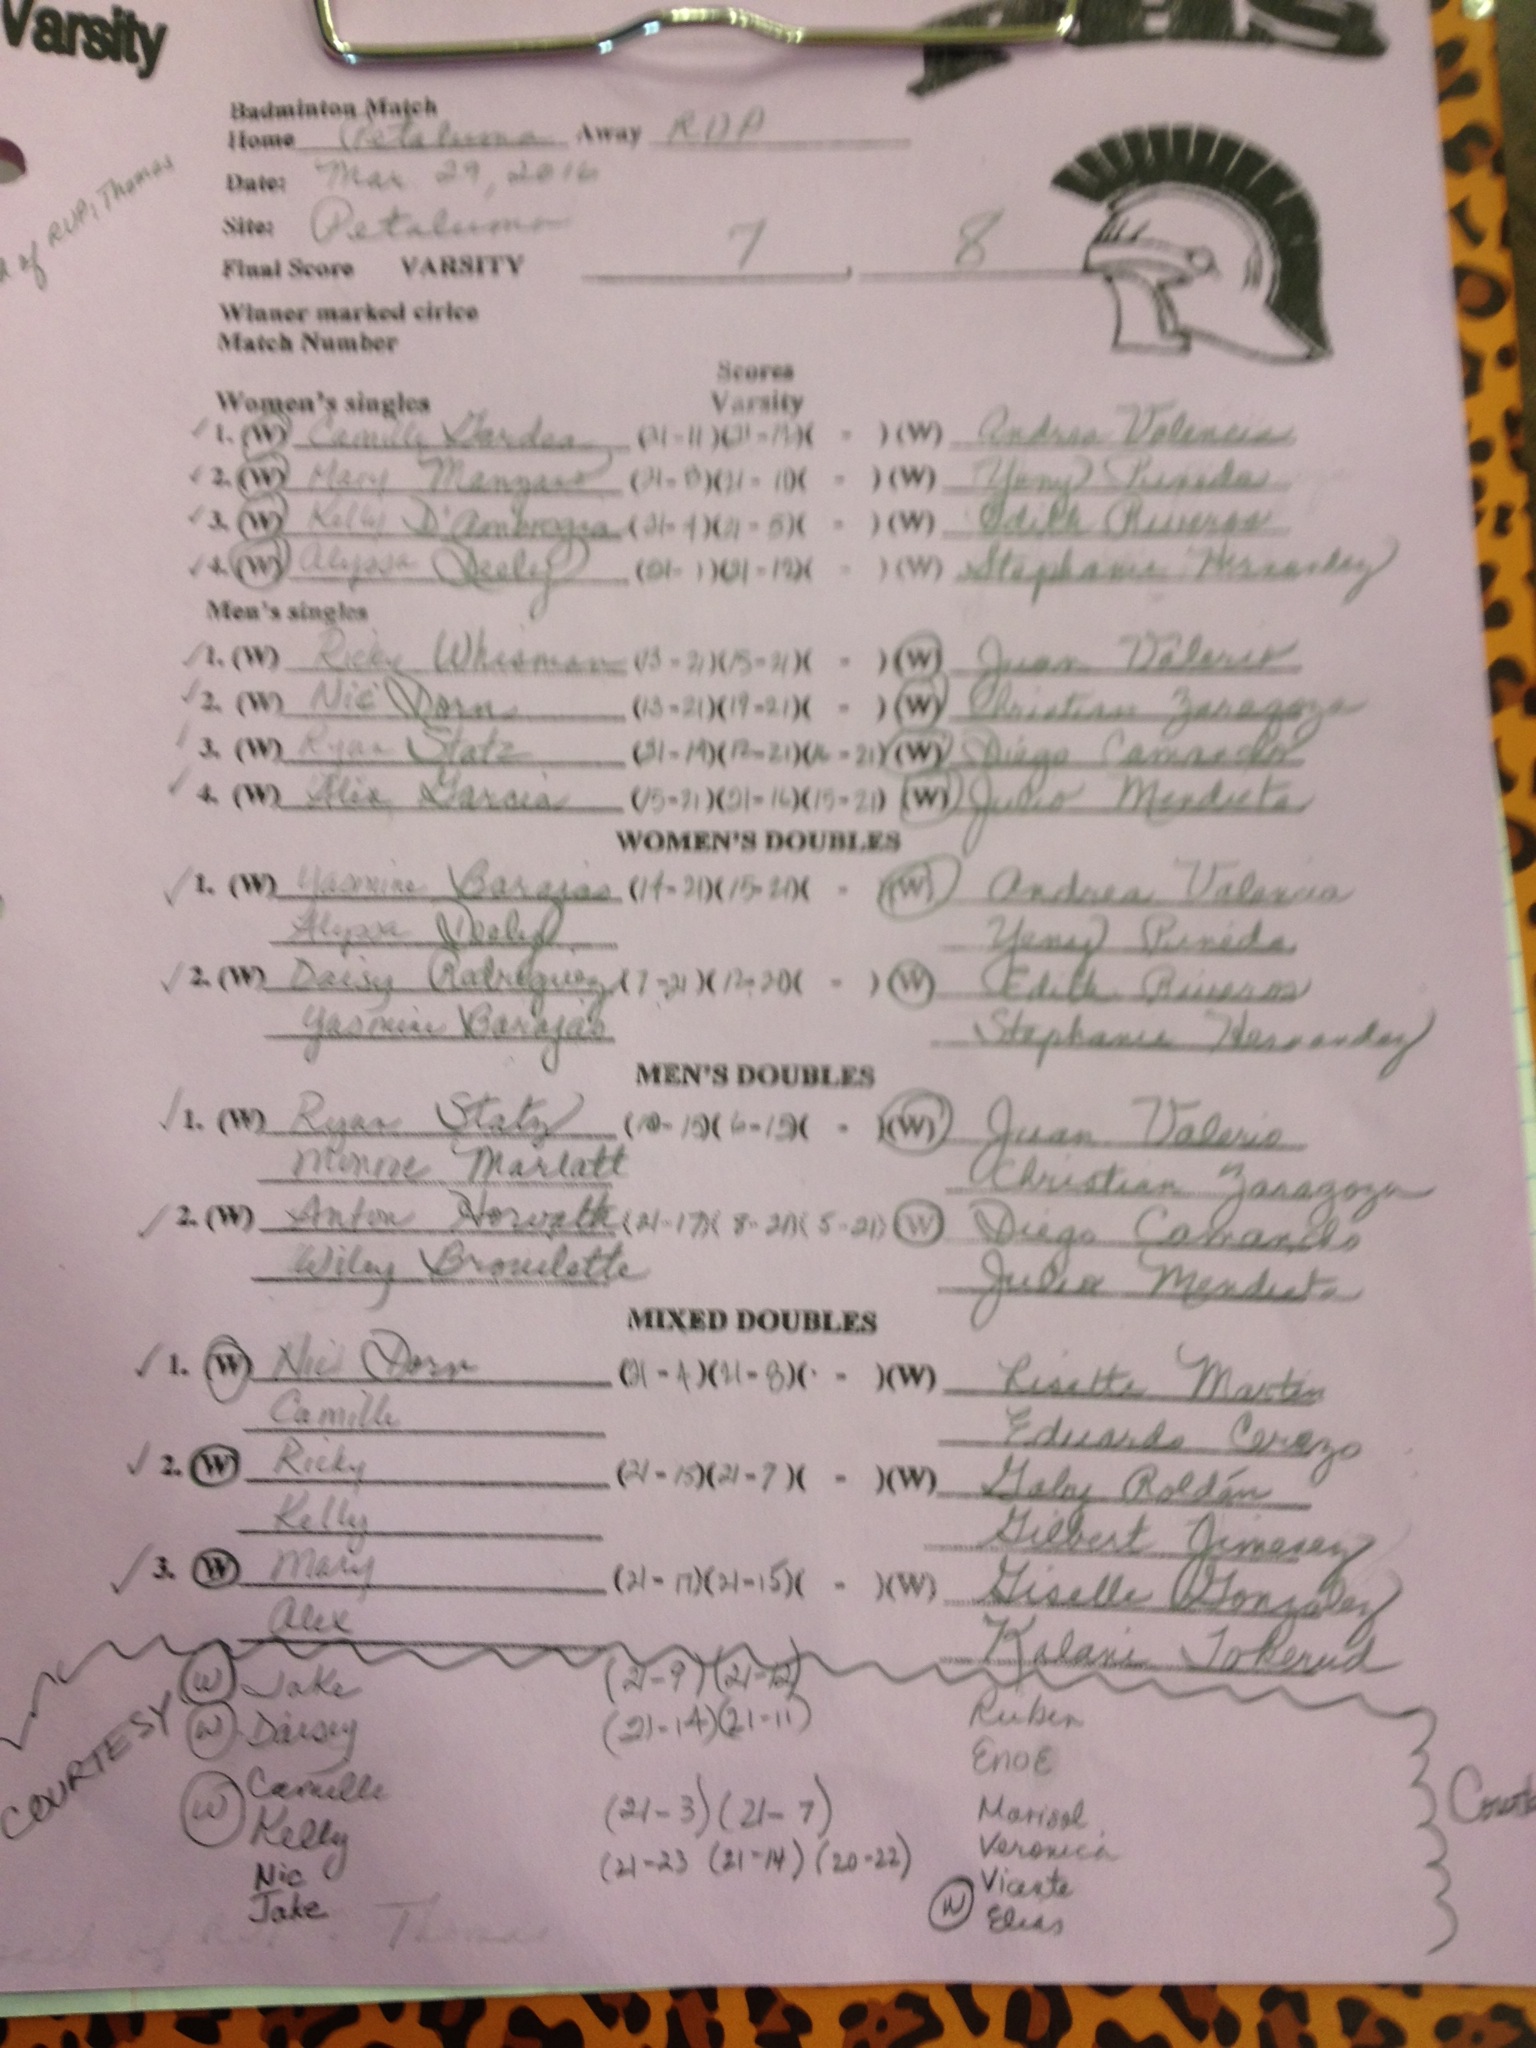 Varsity
Badminton Match
Home Petaluma Away RUP
Date: Mar 29, 2016
Site: Petaluma
Final Score VARSITY 7 8
Winner marked cirlce
Match Number
of RUP, Thomas
Scores
Women's singles Varsity
1. (W) Camille (21-11)( - ) (W) Andrea Valencia
2. (W) Mary Manzano (21- )(21-10)( - ) (W) Yeny Pineda
3. (W) Kelly D'Ambrogia (21-4)(21-5)( - ) (W) Edith Riveros
4. (W) Alyssa Deely (21- )(21-12)( - ) (W) Stephanie Hernandez
Men's singles
1. (W) Ricky Whisman (13-21)(15-21)( - ) (W) Juan Valerio
2. (W) Nic Dorn (13-21)(19-21)( - ) (W) Christian Zaragoza
3. (W) Ryan Statz (21-19)(12-21)(16-21) (W) Diego
4. (W) Alex Garcia (15-21)(21-16)(15-21) (W) Julio Mendieta
WOMEN'S DOUBLES
1. (W) Yasmine Barajas (14-21)(15-21)( - ) (W) Andrea Valencia
Alyssa Deely Yeny Pineda
2. (W) Daisy Rodriguez (7-21)(12-21)( - ) (W) Edith Riveros
Yasmine Barajas Stephanie Hernandez
MEN'S DOUBLES
1. (W) Ryan Statz (10-15)(6-15)( - ) (W) Juan Valerio
Marlatt Christian Zaragoza
2. (W) Anton Horvath (21-17)(8-21)(5-21) (W) Diego
Wiley Brouilette Julio Mendieta
MIXED DOUBLES
1. (W) Nic Dorn (21-4)(21-8)( - ) (W) Lisette Martin
Camille Eduardo Cerezo
2. (W) Ricky (21-15)(21-7)( - ) (W) Gaby Roldán
Kelly Gilbert Jimenez
3. (W) Mary (21-17)(21-15)( - ) (W) Giselle Gonzalez
Alex Kalani Tokerud
COURTESY
W Jake (21-9)(21-12) Ruben
W Daisey (21-14)(21-11) Enoe
W Camille (21-3)(21-7) Marisol
Kelly Veronica
Nic (21-23 (21-14)(20-22) Vicente
Jake W Elias
Thomas